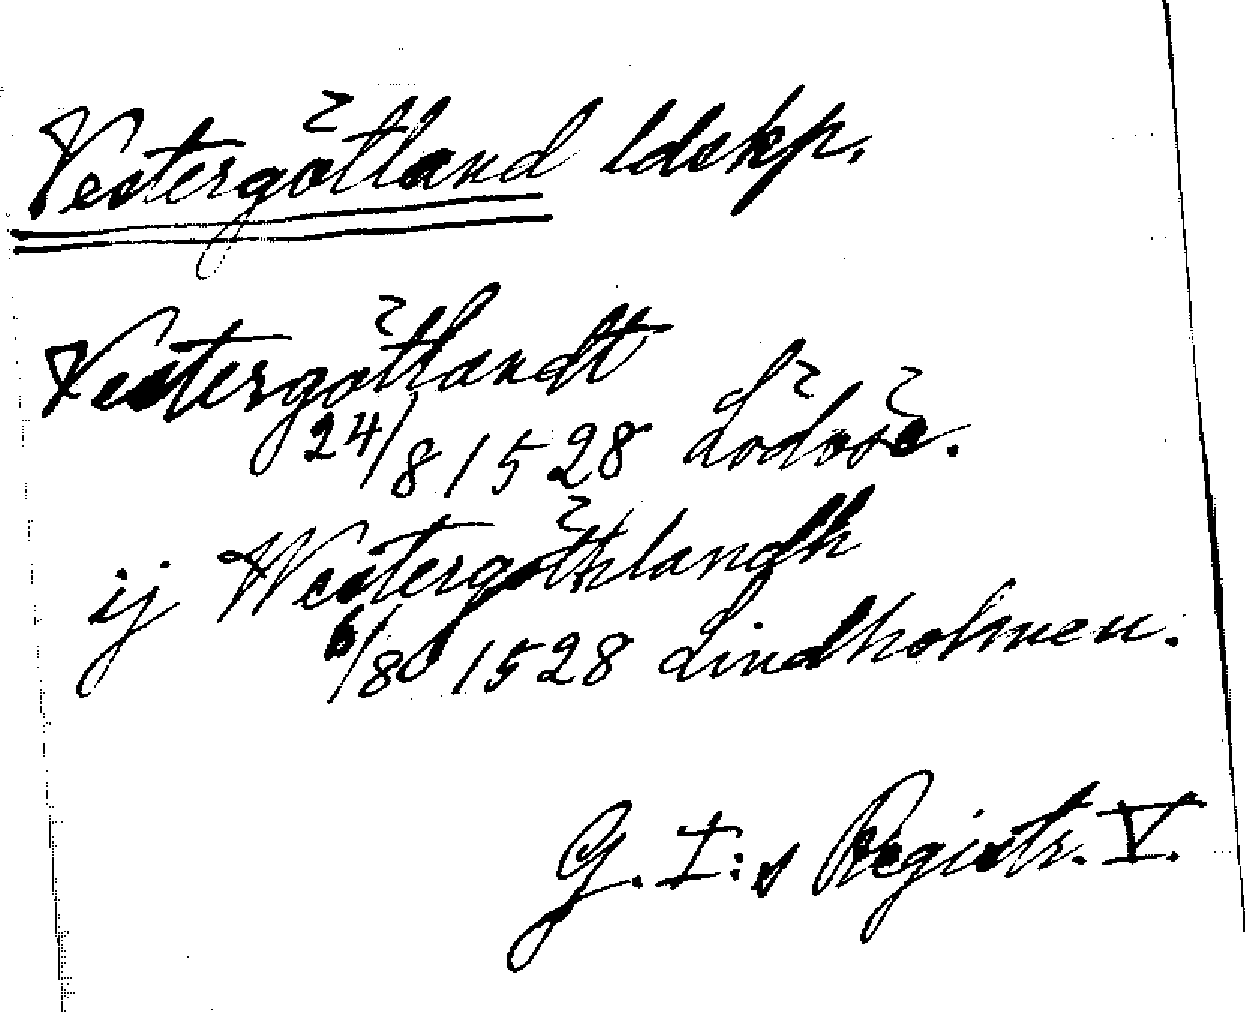 Vestergötland ldskp.
Vestergötlandt
24/8 1528 Lödöse.
ij Westergöthlandh
6/8 1528 Lindholmen.
G. I:s Registr. V.